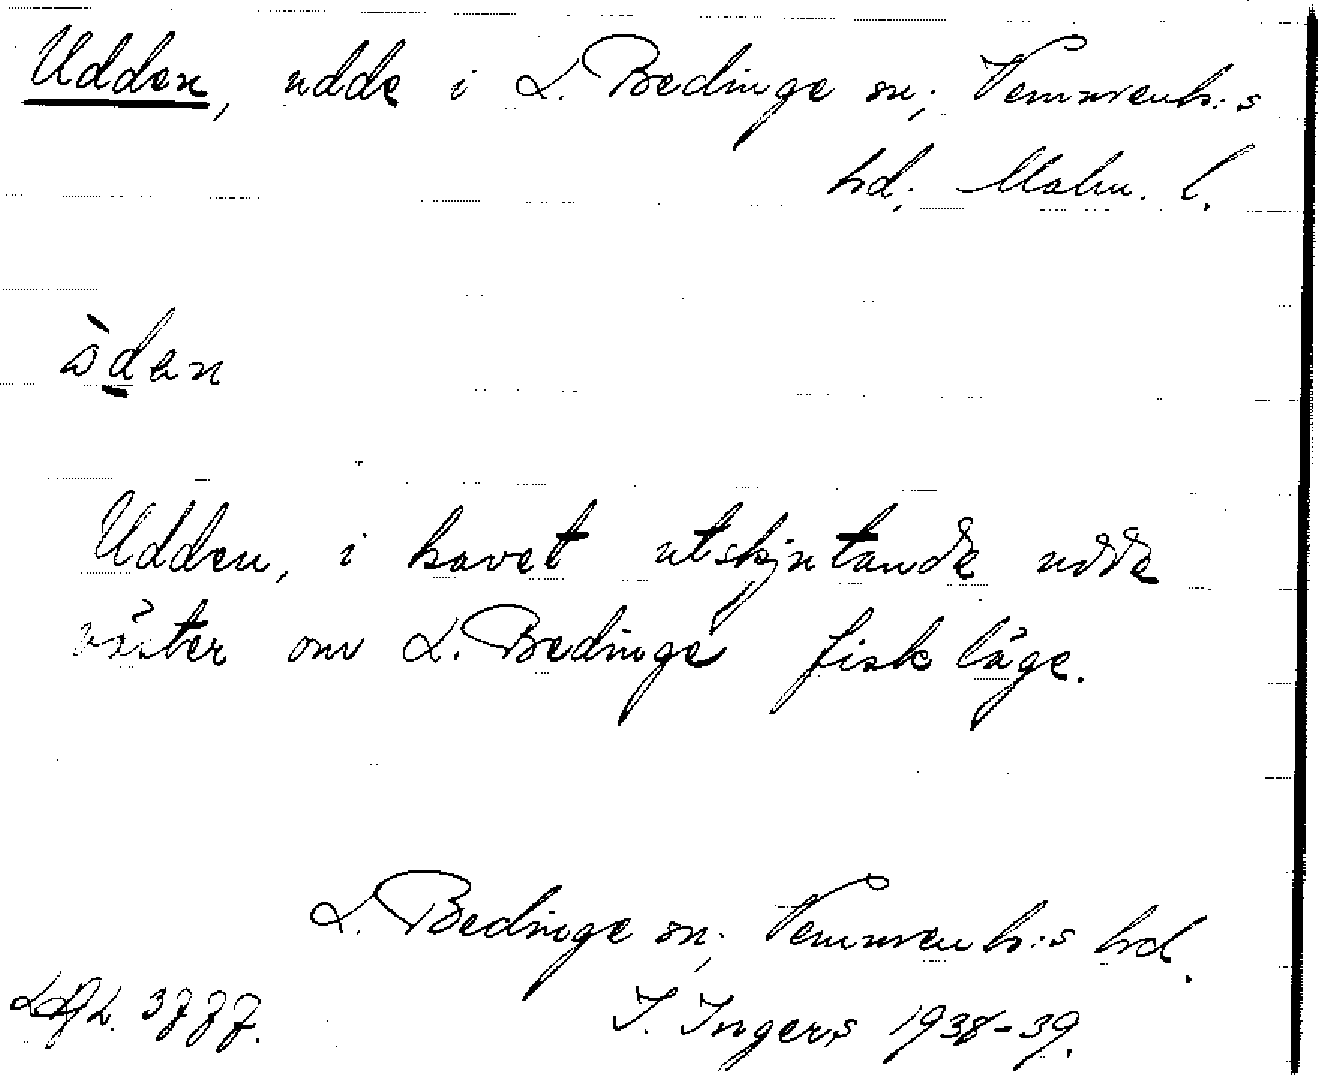 Udden, udde i L. Bedinge sn; Vemmenh:s
hd; Malm. l.
ò̀den
Udden, i havet utskjutande udde
väster om L. Bedinge fiskläge.
L. Bedinge sn; Vemmenh:s hd.
I. Ingers 1938-39.